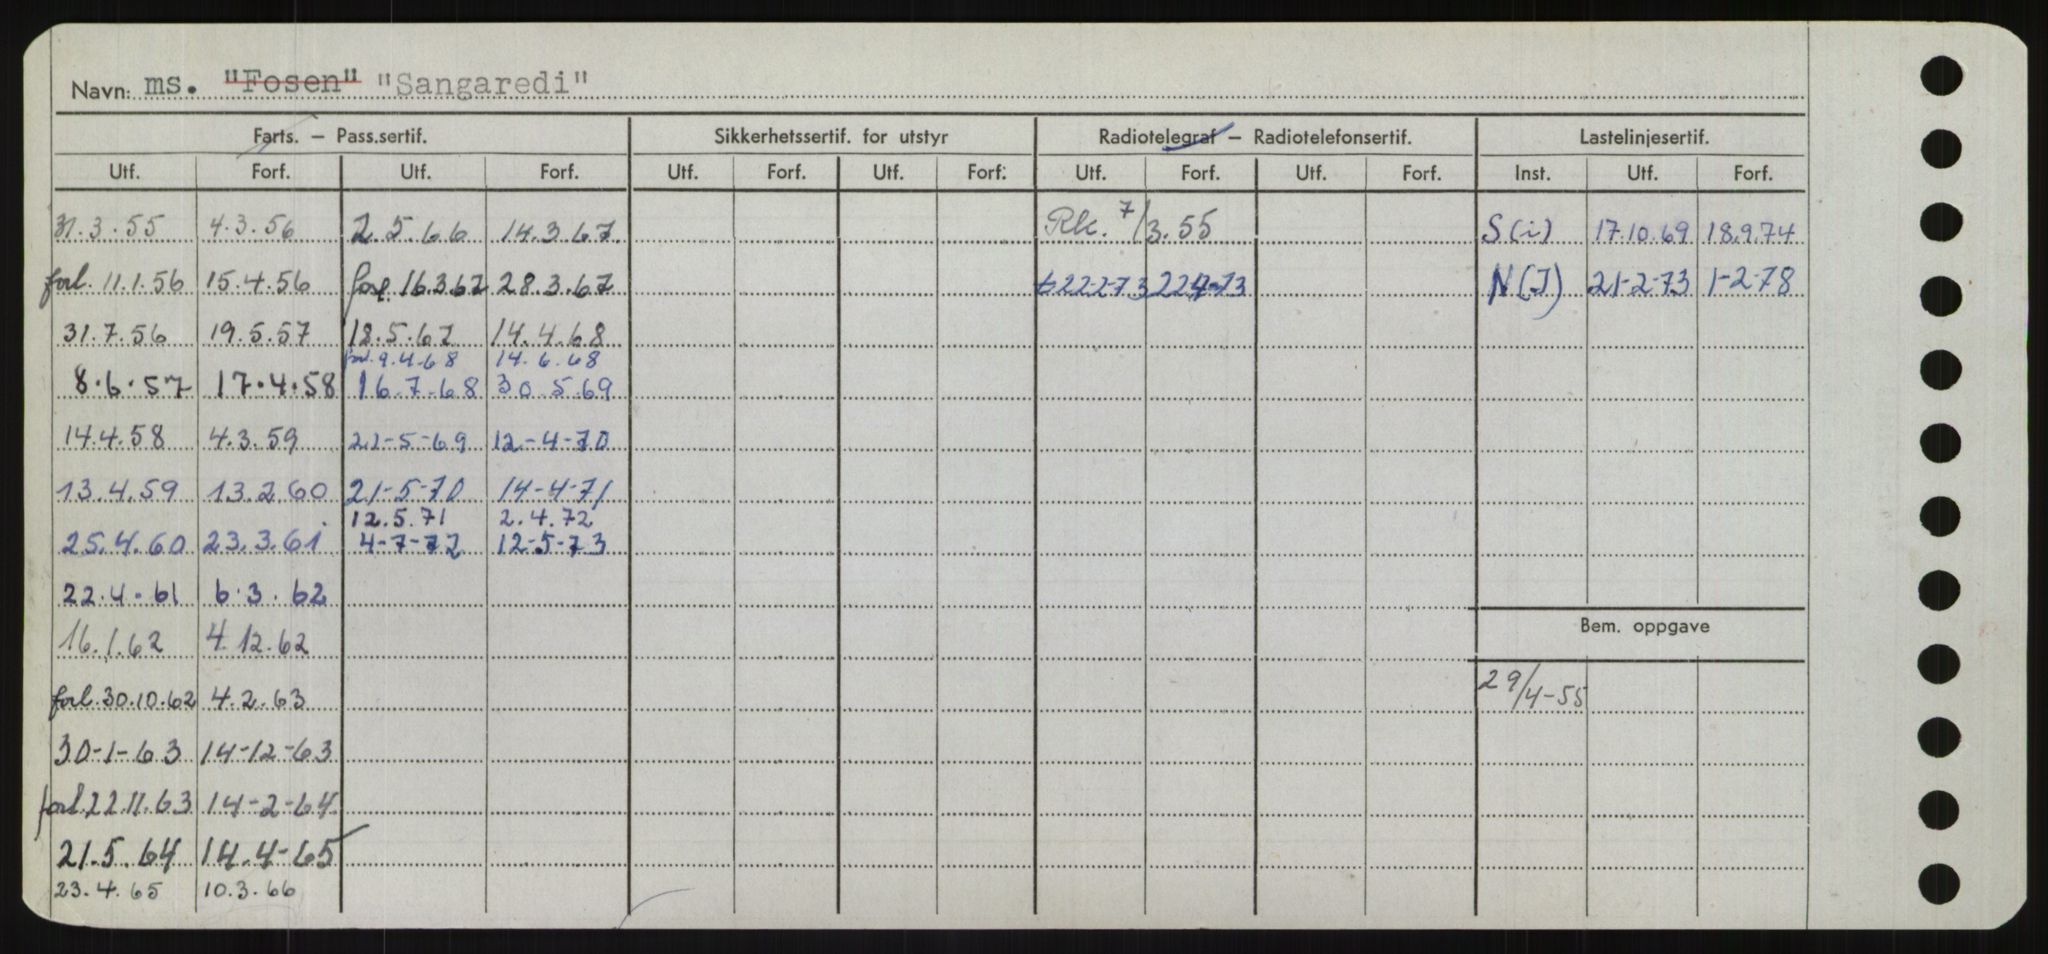 Navn: ms. "Fosen" "Sangaredi"
Farts. – Pass.sertif. Sikkerhetssertif. for utstyr Radiotelegraf – Radiotelefonsertif. Lastelinjesertif.
Utf. Forf. Utf. Forf. Utf. Forf. Utf. Forf. Utf. Forf. Utf. Forf. Inst. Utf. Forf.
31.3.55 4.3.56 2.5.66 14.3.67. Rk. 7/3.55 S(i) 17.10.69 18.9.74
forl. 11.1.56 15.4.56 forl. 16.3.67 28.3.67 t 22.2-73 N(I) 21-2-73 1-2-78
31.7.56 19.5.57 18.5.67 14.4.68
forl. 9.4.68 14.6.68
8.6.57 17.4.58 16.7.68 30.5.69
14.4.58 4.3.59 21-5-69 12-4-70
13.4.59 13.2.60 21-5-70 14-4-71
12.5.71 2.4.72
25.4.60 23.3.61 4-7-72 12-5-73
22.4.61 6.3.62
16.1.62 4.12.62
Bem. oppgave
forl. 30.10.62 4.2.63 29/4-55
30-1-63 14-12-63
forl. 22.11.63 14-2-64
21.5.64 14.4-65
23.4.65 10.3.66